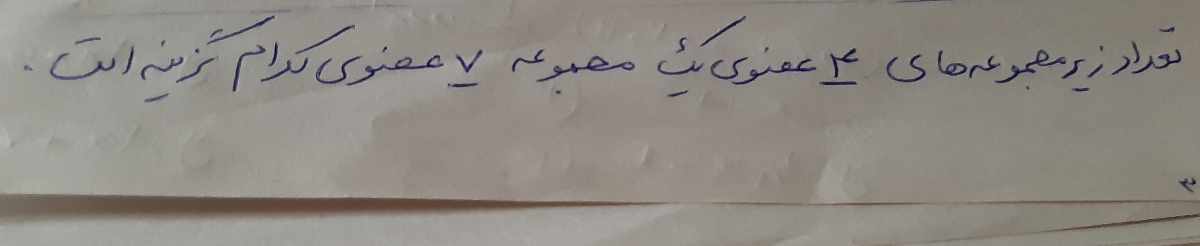 تعداد زیرمجموعه‌های ۴ عضوی یک مجموعه ۷ عضوی کدام گزینه است.
۳